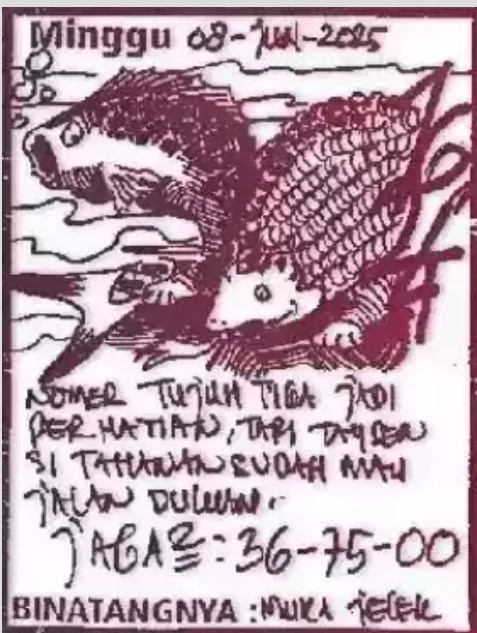 Minggu 08-JUN-2025
NOMER TUJUH TIGA JADI
PERHATIAN, TAPI
SI TAHANAN SUDAH MAU
JALAN DULUAN.
JAGA2: 36-75-00
BINATANGNYA : MUKA JELEK